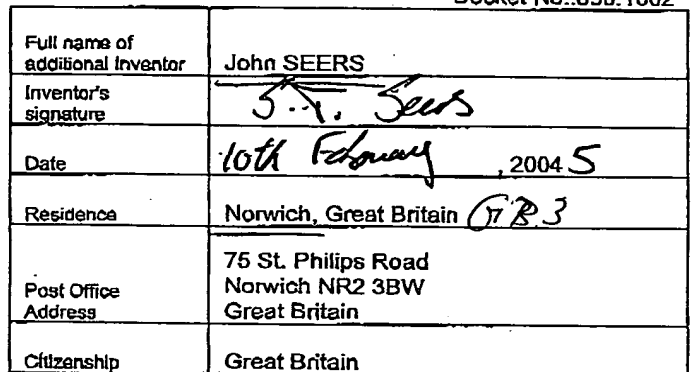 Full name of
additional Inventor John SEERS
Inventor's
signature Seers
Date 10th February, 2004 5
Residence Norwich, Great Britain GB3
Post Office
Address
75 St. Philips Road
Norwich NR2 3BW
Great Britain
Citizenship Great Britain